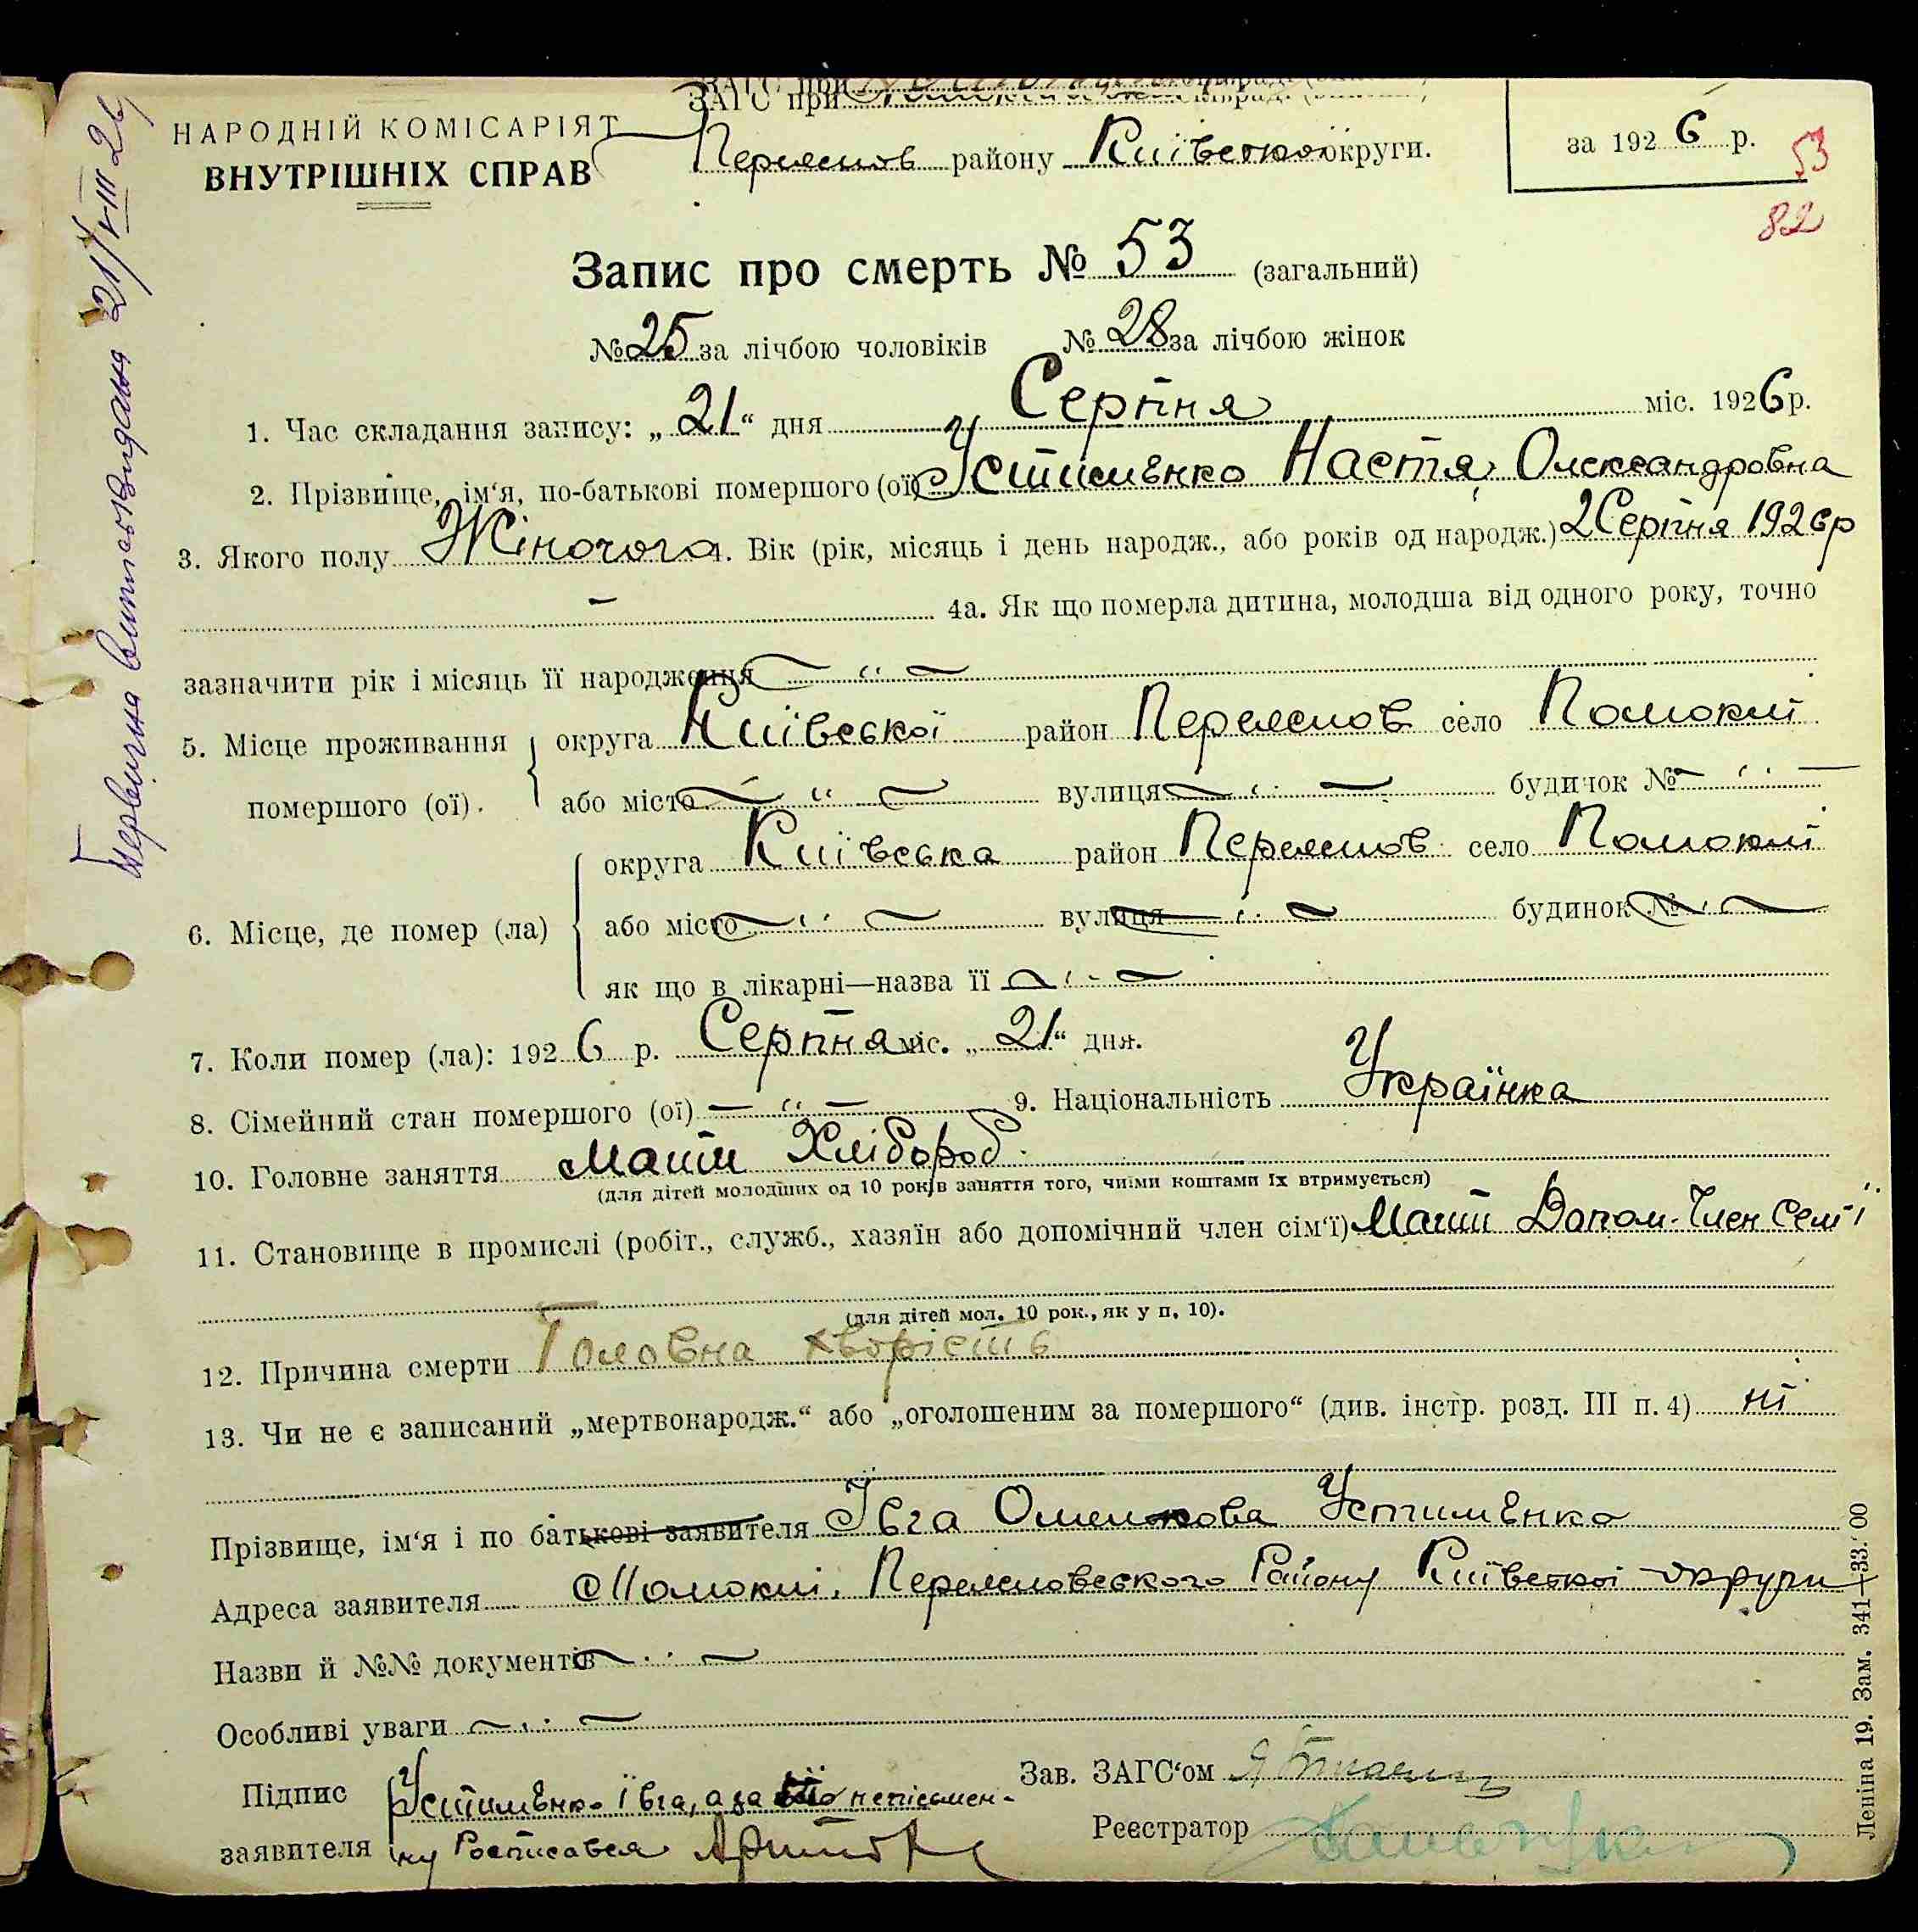 ЗАГС при
НАРОДНІЙ КОМІСАРІЯТ
ВНУТРІШНІХ СПРАВ
Переяслов району Київської округи.
за 1926 р.
53
82
Запис про смерть № 53 (загальний)
№ 25 за лічбою чоловіків № 28 за лічбою жінок
1. Час складання запису: „21“ дня Серпня міс. 1926 р.
2. Прізвище, ім‘я, по-батькові помершого (ої) Устименко Настя Олександровна
3. Якого полу Жіночога. Вік (рік, місяць і день народж., або років од народж.) 2 Серпня 1926р
— 4а. Як що померла дитина, молодша від одного року, точно
зазначити рік і місяць її народження — “ —
5. Місце проживання округа Київської район Переяслов село Помоклі
помершого (ої). або місто — “ — вулиця — “ — будинок № — “ —
округа Київська район Переяслов село Помоклі
6. Місце, де помер (ла) або місто — “ — вулиця — “ — будинок № — “ —
як що в лікарні—назва її — “ —
7. Коли помер (ла): 1926 р. Серпня міс. „21“ дня.
8. Сімейний стан помершого (ої) — “ — 9. Національність Українка
10. Головне заняття Мати Хлібороб.
(для дітей молодших од 10 років заняття того, чиїми коштами їх втримується)
11. Становище в промислі (робіт., служб., хазяїн або допомічний член сім‘ї) Мати Допом. Член Семї
(для дітей мол. 10 рок., як у п. 10).
12. Причина смерти Головна хворість
13. Чи не є записаний „мертвонародж.“ або „оголошеним за помершого“ (див. інстр. розд. III п. 4) ні
Прізвище, ім‘я і по батькові заявителя Ївга Омелькова Устименко
Адреса заявителя с Помоклі. Переясловського Району Київської округи
Назви й №№ документів — “ —
Особливі уваги — “ —
Підпис Устименко Івга, а за неї неписмен-
заявителя ну Росписався
Зав. ЗАГС‘ом
Реєстратор
Первична виписка видана 21/VIII 26
Леніна 19. Зам. 341—33.'00